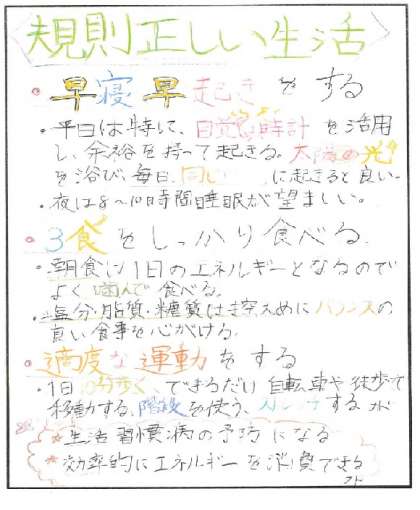 規則正しい生活
早寝早起きをする
・平日は特に、目覚まし時計を活用
し、余裕を持って起きる。太陽の光
を浴び、毎日、同じ に起きると良い。
・夜は8〜10時間睡眠が望ましい。
3食をしっかり食べる
・朝食は1日のエネルギーとなるので
よく噛んで食べる。
・塩分・脂質・糖質は控えめにバランスの
良い食事を心がける。
適度な運動をする
・1日 歩く、できるだけ自転車や徒歩で
移動する、階段を使う、ストレッチするなど
★生活習慣病の予防になる
★効率的にエネルギーを消費できる